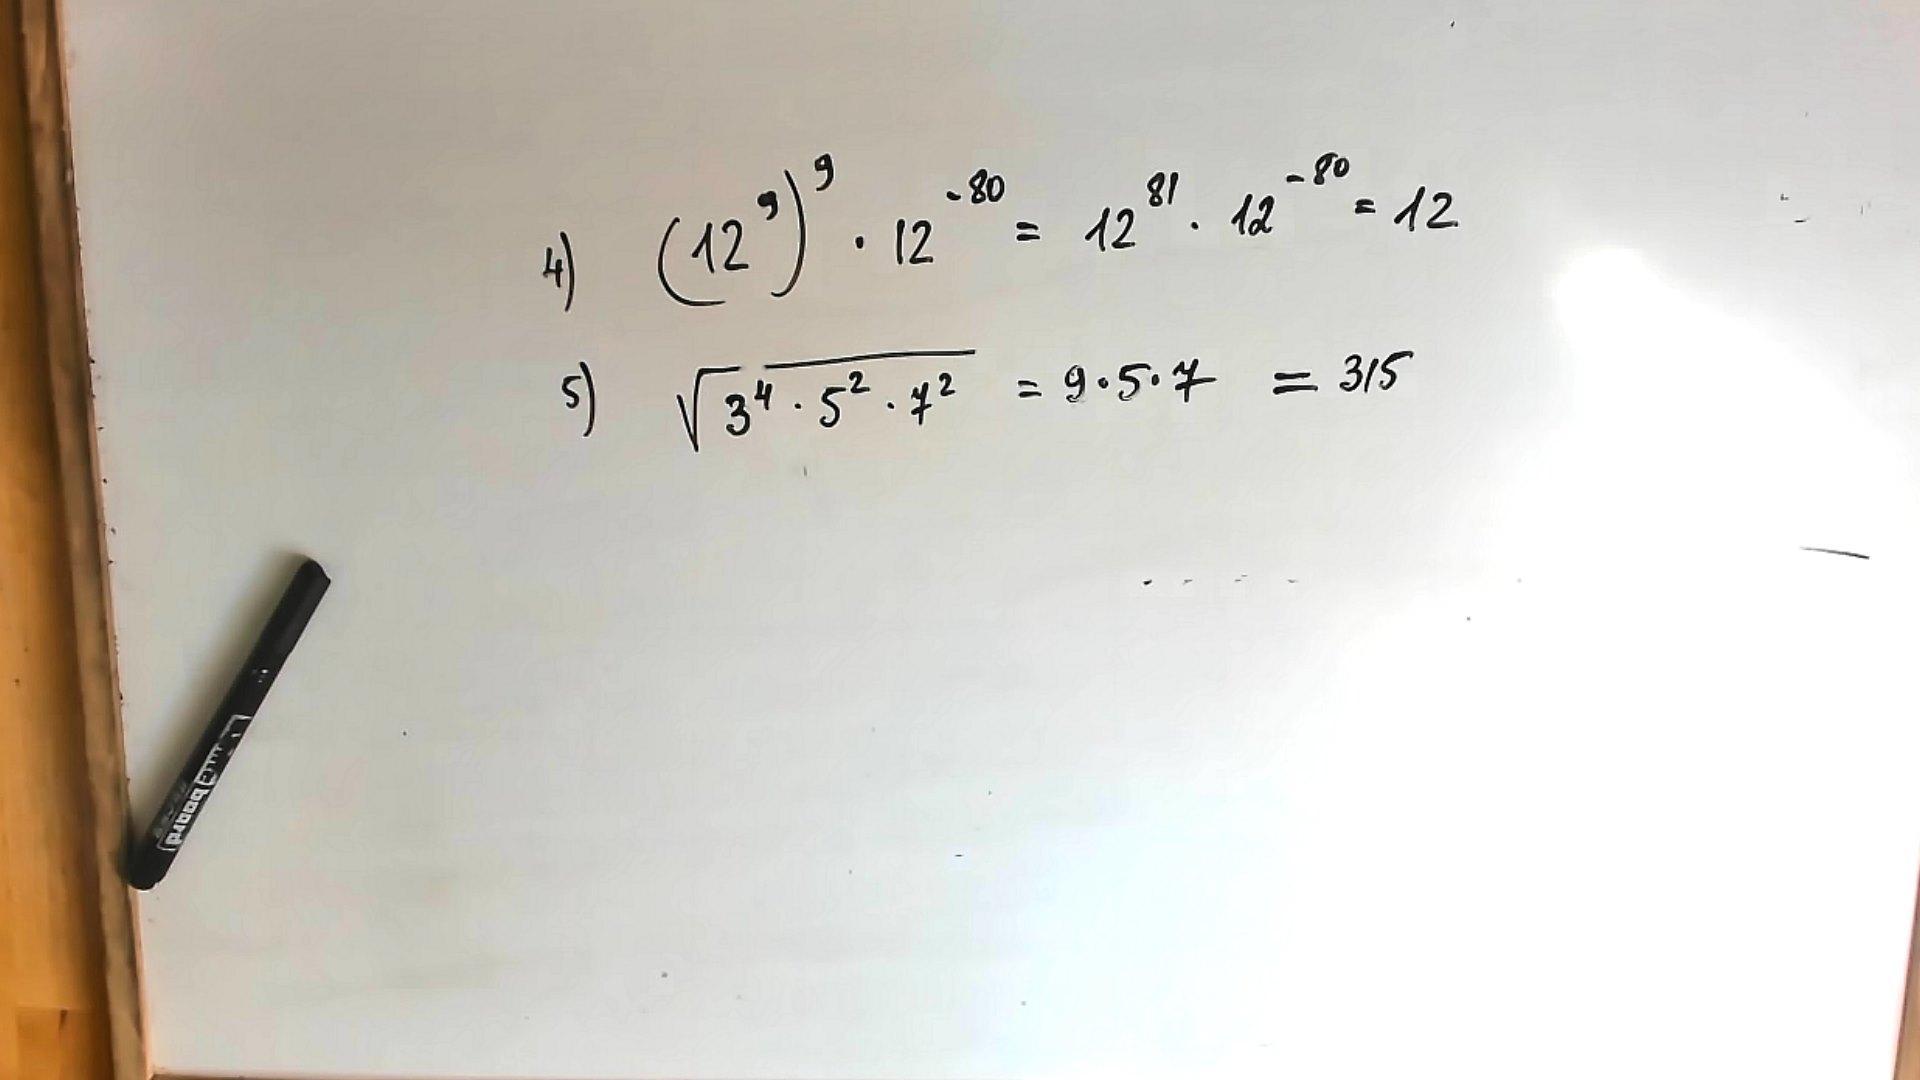 4) (12⁹)⁹ · 12⁻⁸⁰ = 12⁸¹ · 12⁻⁸⁰ = 12
5) √(3⁴ · 5² · 7²) = 9·5·7 = 315
board